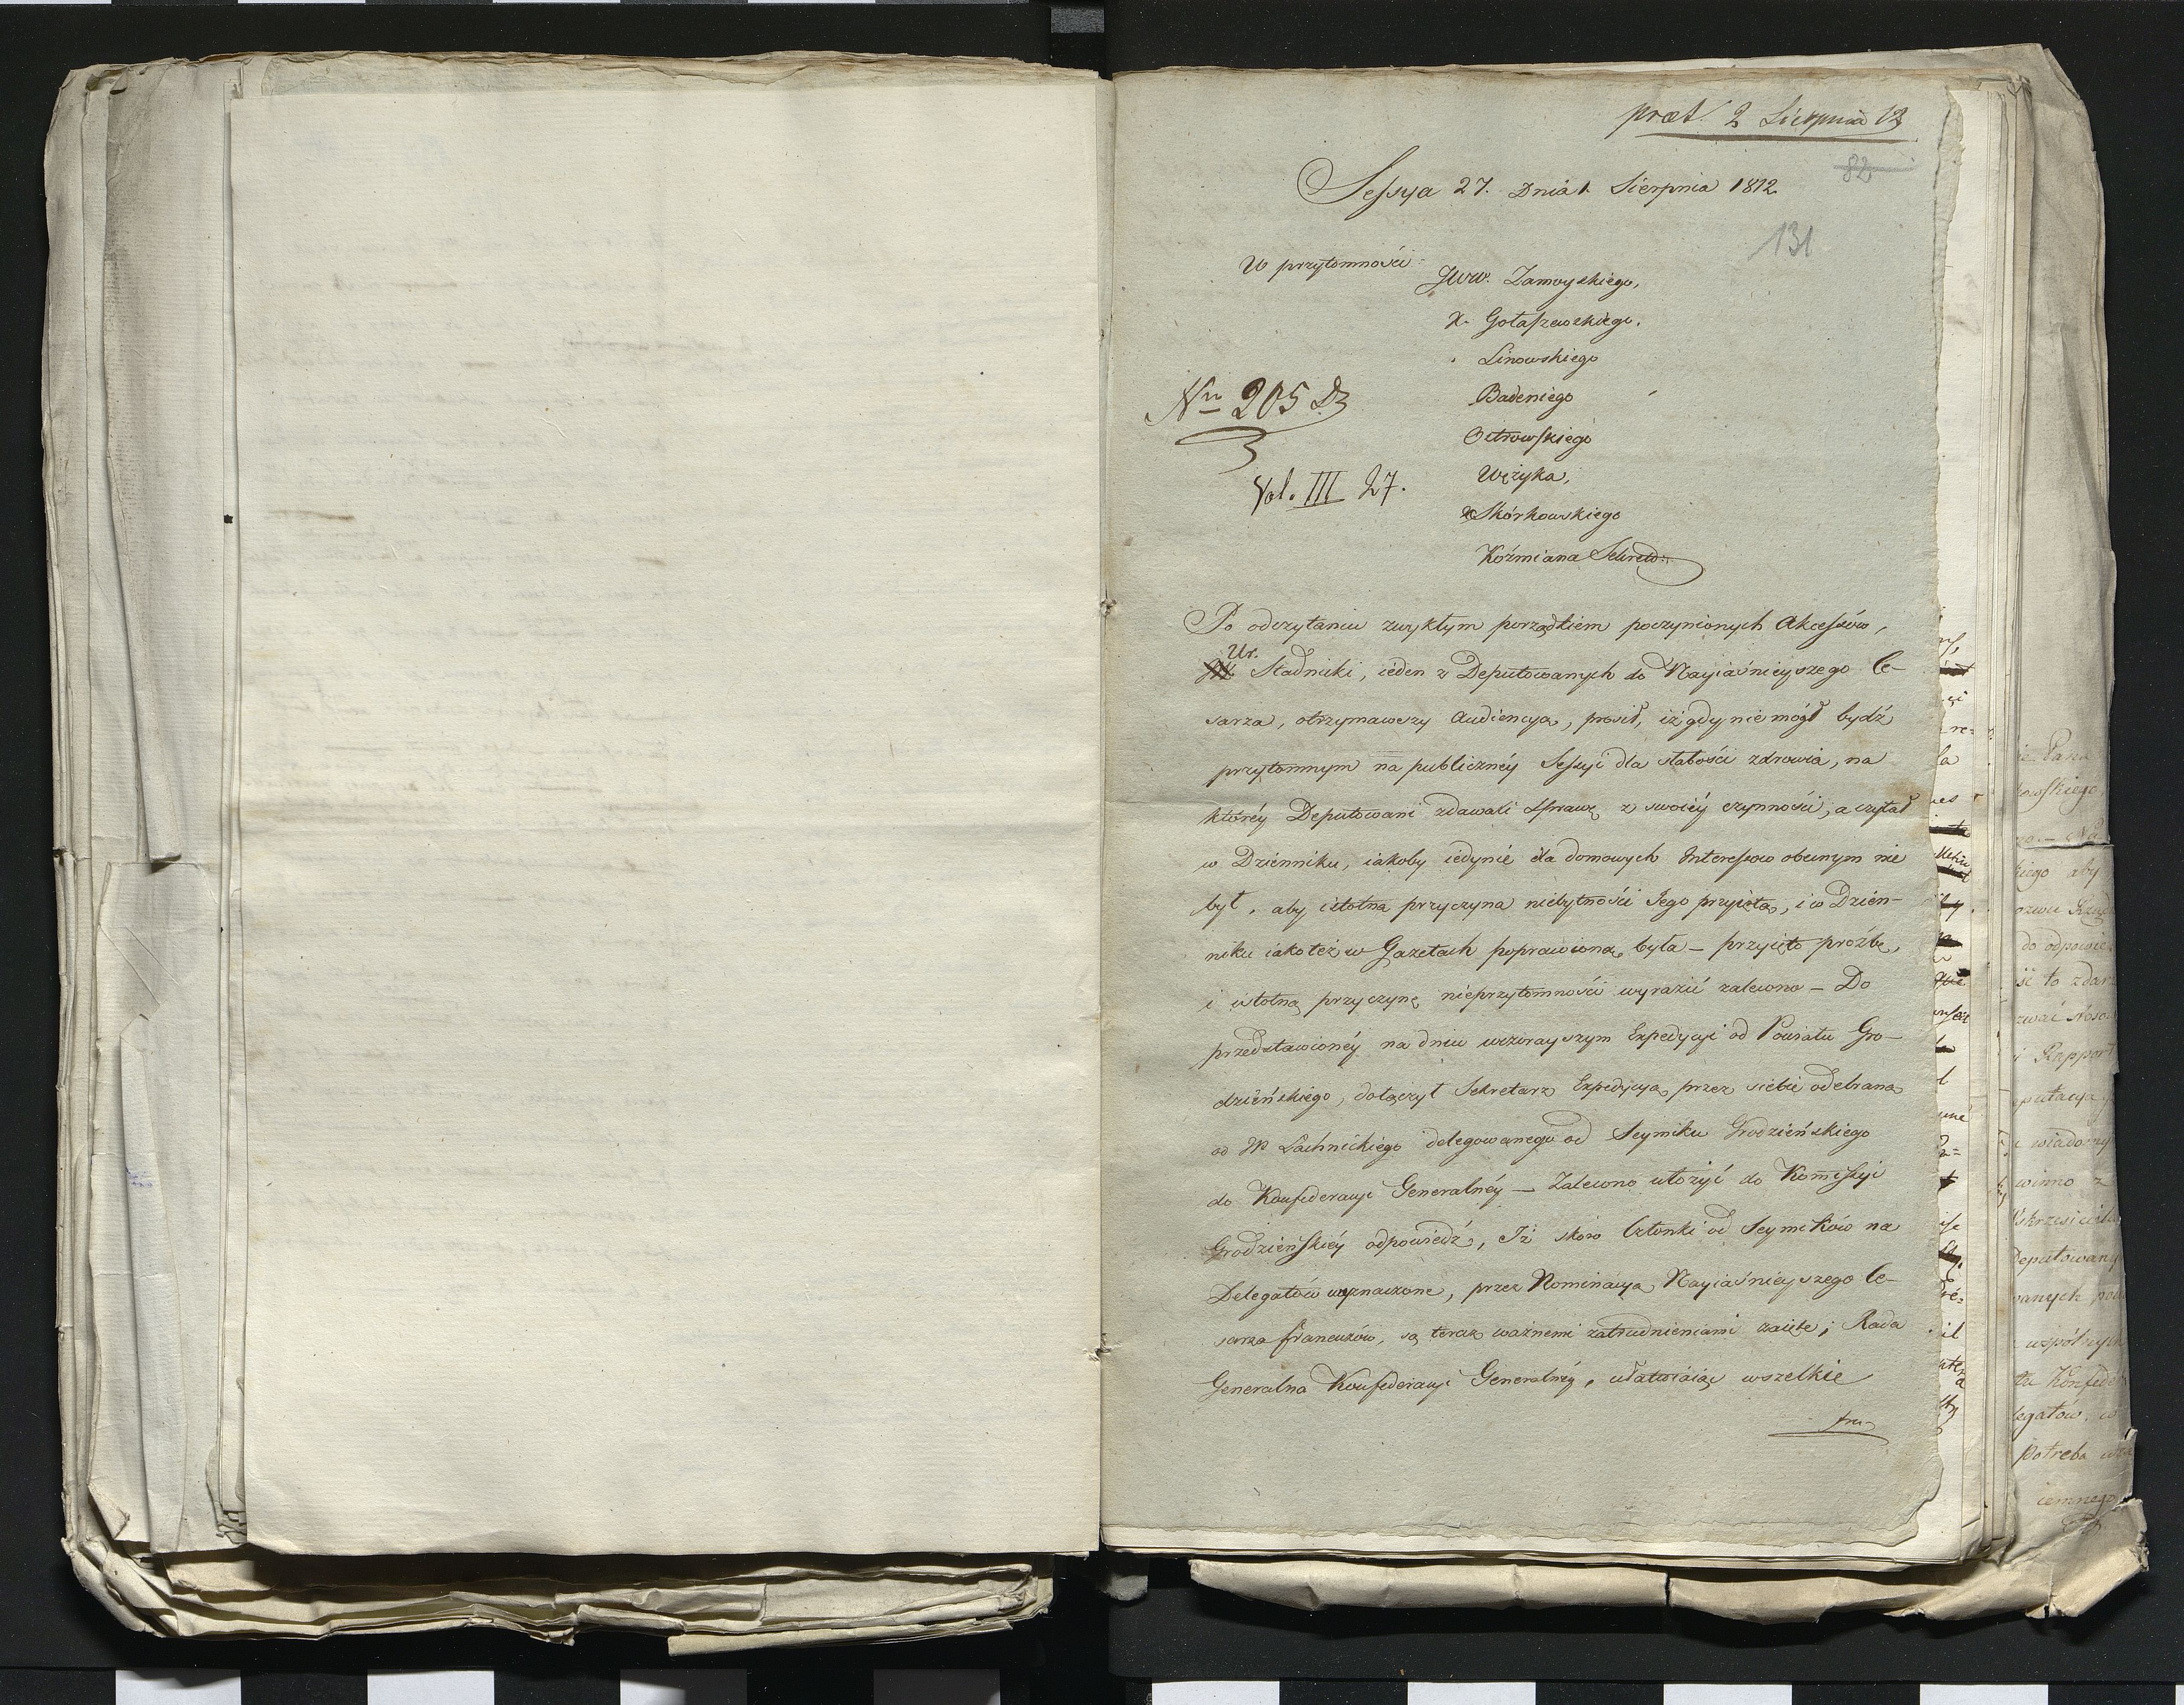 præt. 2 Sierpnia 12
82
Sessya 27. Dnia 1. Sierpnia 1812
131
W przytomności:
JWW. Zamoyskiego,
X. Gołaszewskiego.
Linowskiego
Badeniego
Nro 205 Dz
Ostrowskiego
Wężyka,
Vol. III 27.
Skórkowskiego
Koźmiana Sekreta:
Po odczytaniu zwykłym porządkiem poczynionych Akcessów,
Ur.
JW Stadnicki, ieden z Deputowanych do Nayiaśnieyszego Ce-
sarza, otrzymawszy Audiencyą, prosił, iż gdy nie mógł bydź
przytomnym na publicznéy Sessyi dla słabości zdrowia, na
któréy Deputowani zdawali sprawę z swoiéy czynności, a czytał
w Dzienniku, iakoby iedynie dla domowych Interessow obecnym nie
był, aby istotna przyczyna niebytności Jego przyięta, i w Dzien-
niku iako też w Gazetach poprawiona była – przyięto proźbę,
i istotną przyczynę nieprzytomności wyrazić zalecono – Do
przedstawionéy na dniu wczorayszym Expedycyi od Powiatu Gro-
dzieńskiego, dołączył Sekretarz Expedycyą przez siebie odebraną
od W Lachnickiego delegowanego od Seymiku Grodzieńskiego
do Konfederacyi Generalnéy – Zalecono ułożyć do Kommissyi
Grodzieńskiéy odpowiedź, Iż skoro Członki od Seymików na
Delegatów wyznaczone, przez Nominacyą Nayiaśnieyszego Ce-
sarza francuzów, są teraz ważnemi zatrudnieniami zaięte; Rada
Generalna Konfederacyi Generalnéy, ułatwiaiąc wszelkie
tru